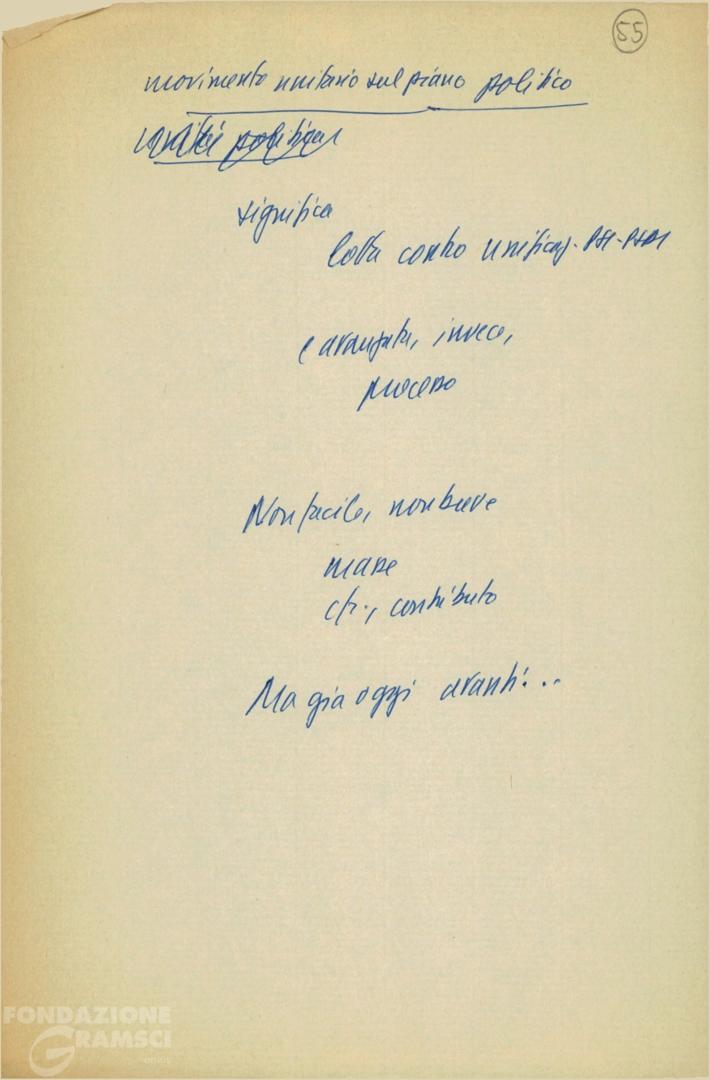 55
movimento unitario sul piano politico
unità politica
significa
lotta contro unificaz. PSI-PSDI
e avanzata, invece,
processo
Non facile, non breve
masse
cfr., contributo
Ma già oggi avanti...
FONDAZIONE
GRAMSCI